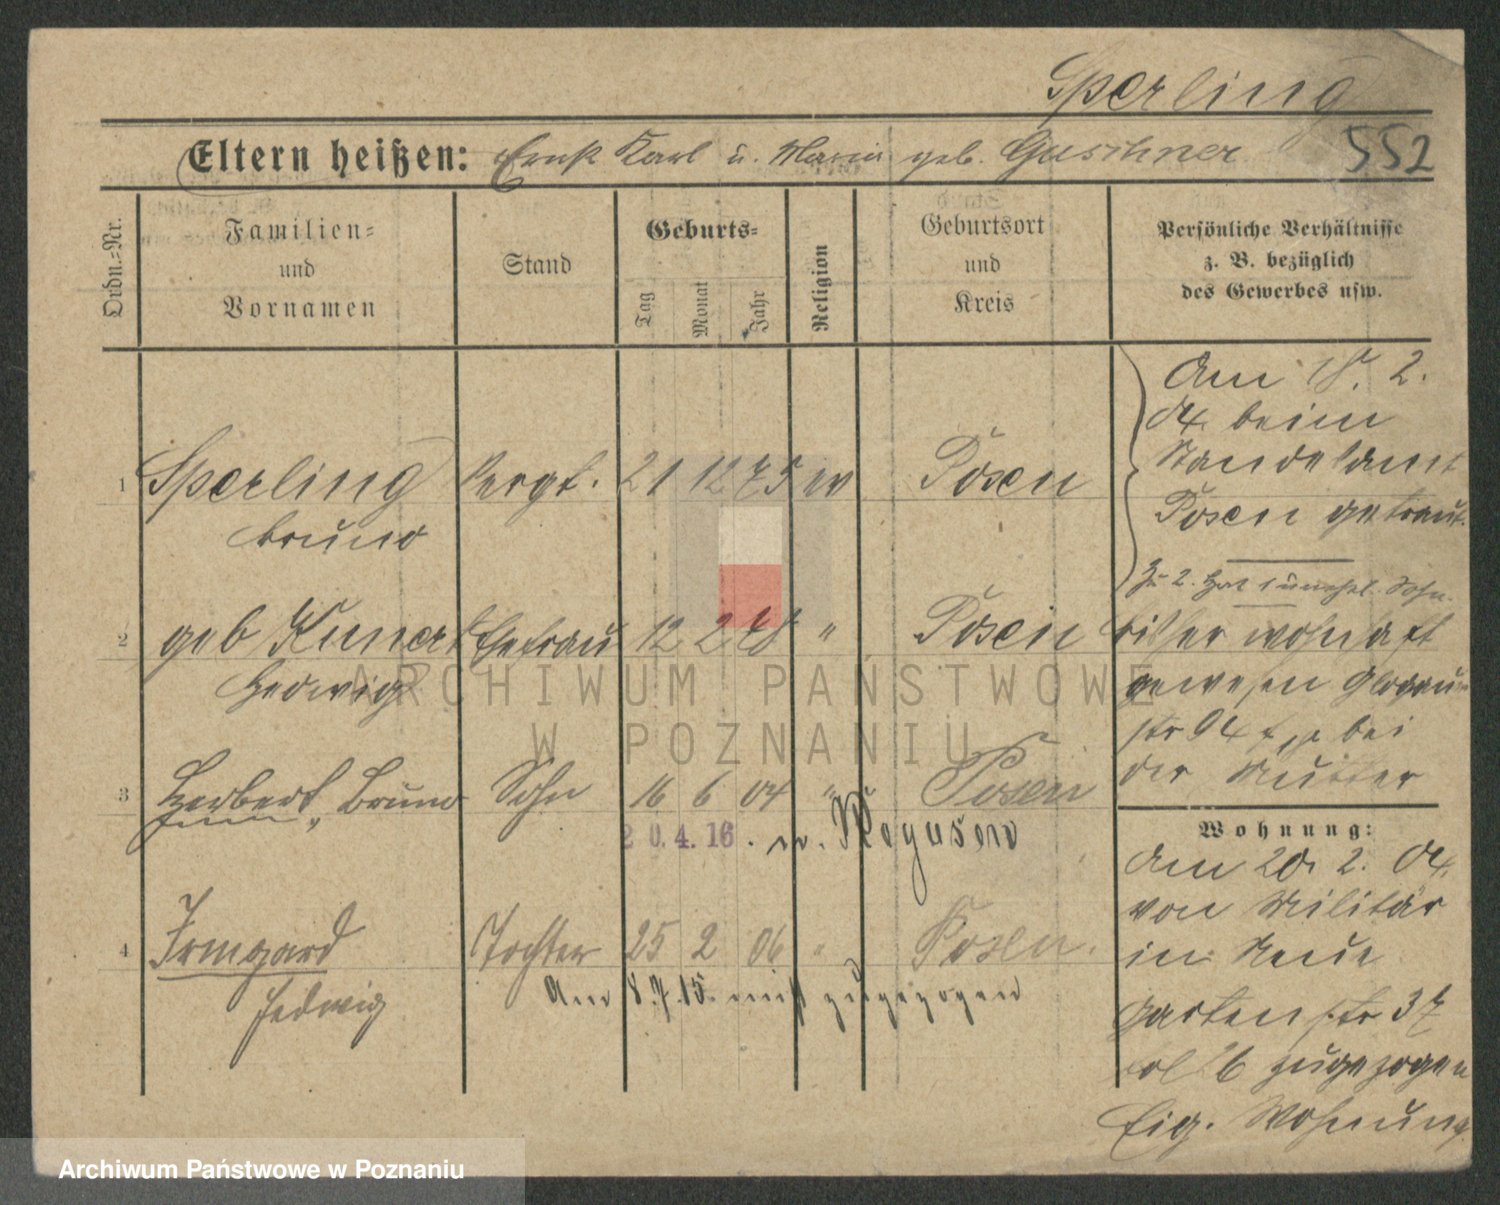 Sperling
552
Eltern heißen: Ernst Karl u. Maria geb. Guschner
Ordn.-Nr.
Familien-
und
Vornamen
Stand
Geburts-
Tag
Monat
Jahr
Religion
Geburtsort
und
Kreis
Persönliche Verhältnisse
z. B. bezüglich
des Gewerbes usw.
Am 18. 2.
04. beim
Standesamt
Posen getraut.
1 Sperling Sergt. 21 12 75 ev Posen
Bruno
Zu 2. Hat 1 unehel. Sohn.
2 geb Kunert Ehefrau 12 2 78 " Posen
Hedwig
bisher wohnhaft
gewesen Glogauer
str 94 bei
der Mutter
3 Herbert, Bruno Sohn 16 6 04 " Posen
20.4.16. n. Rogasen
4 Irmgard Tochter 25 2 06 " Posen.
Hedwig
Am 8.7.15. mit zugezogen
Wohnung:
Am 20. 2. 04.
von Militär
in Neue
Gartenstr 37
zugezogen
Eig. Wohnung.
ARCHIWUM PAŃSTWOWE
W POZNANIU
Archiwum Państwowe w Poznaniu